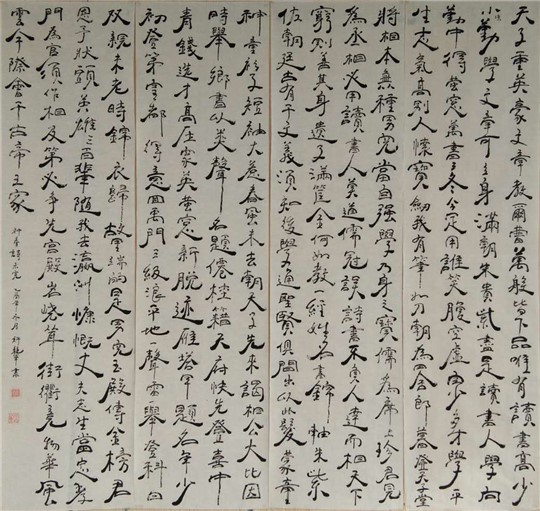 天子重英豪文章教爾曹萬般皆下品唯有讀書高少
小勤學文章可立身滿朝朱貴紫盡是讀書人學向
勤中得螢窗萬書三冬今足用誰笑腹空虛自少多才學平
生志氣高別人懷寶劍我有筆如刀朝為田舍郎暮登天子堂
將相本無種男兒當自強學乃身之寶儒為席上珍君見
為丞相必用讀書人莫道儒冠誤詩書不負人達而相天下
窮則善其身遺子滿籯金何如教一經姓名書錦軸朱紫
佐朝廷古有千文義須知後學通聖賢俱間出以此發蒙童
神童衫子短袖大惹春風未去朝天子先來謁相公大比因
時舉鄉書以類聲名題僊桂籍天府快先登喜中
青錢選才高壓眾英螢窗新脫迹雁塔早題名年少
初登第皇都得意回禹門三級浪平地一聲雷一舉登科日
双親未老時錦衣歸故里端的是男兒玉殿傳金榜君
恩予狀頭英雄三百輩隨我去瀛洲慷慨丈夫志生當忠孝
門為官須作相及第必爭先宮殿岧嶢聳街衢竟物華風
雲今際會千古帝王家